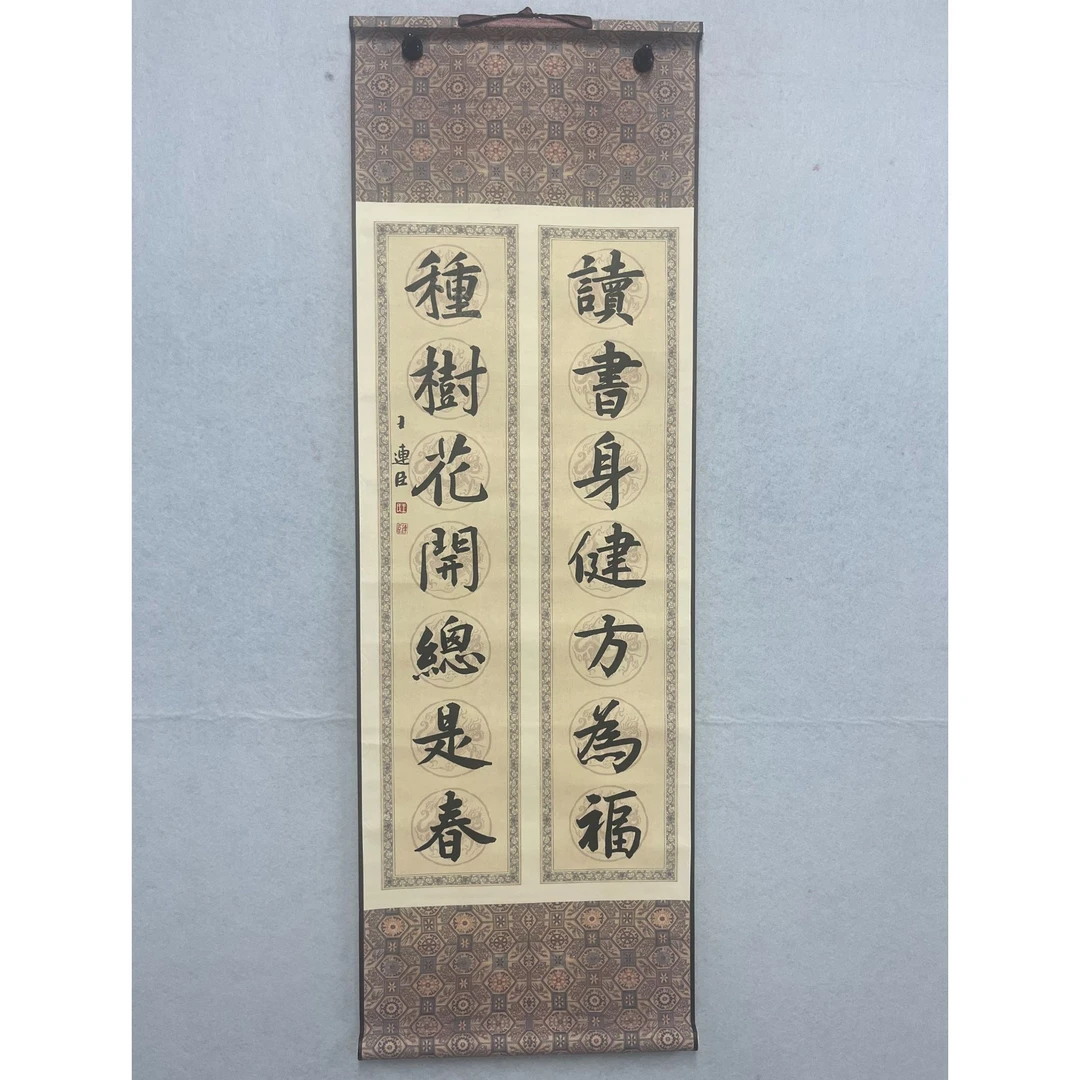 讀書身健方為福
種樹花開總是春
王連臣